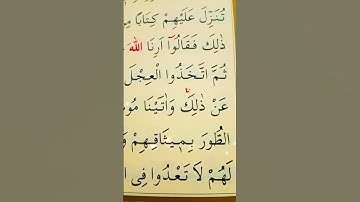 تُنَزِّلَ عَلَيْهِمْ كِتَابًا
ذٰلِكَ فَقَالُٓوا اَرِنَا اللّٰهَ
ثُمَّ اتَّخَذُوا الْعِجْلَ
عَنْ ذٰلِكَ وَاٰتَيْنَا
الطُّورَ بِم۪يثَاقِهِمْ
لَهُمْ لَا تَعْدُوا فِي